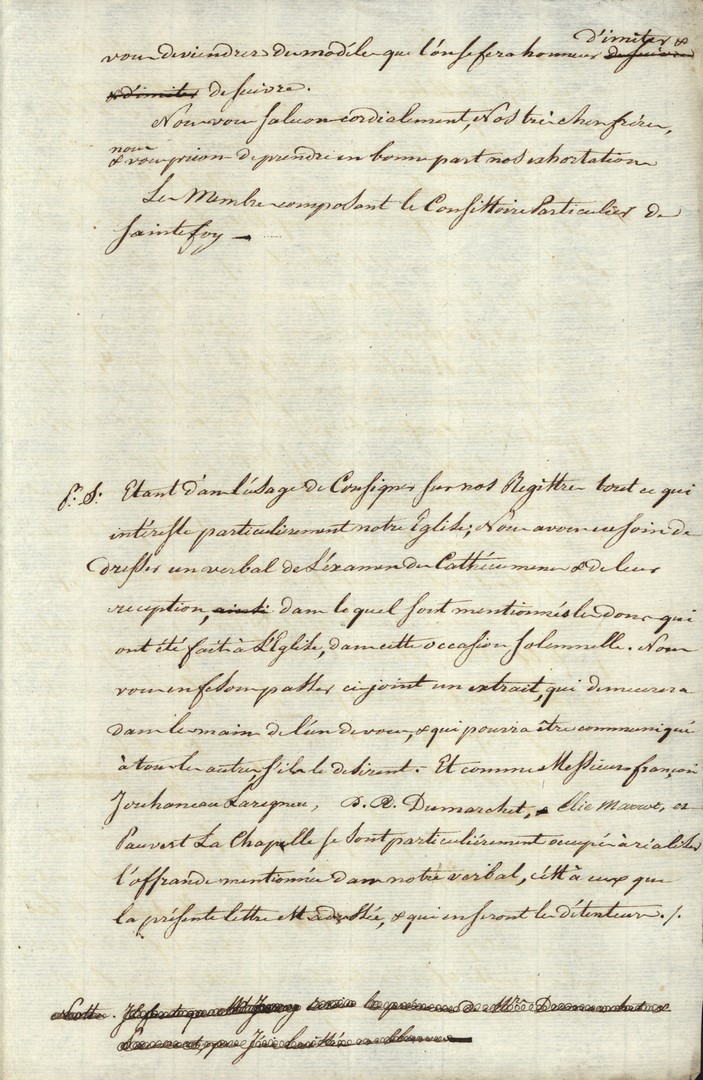 d'imiter &
vous deviendrez du modèle que l'on se fera honneur de suivre
& d'imiter de suivre.
Nous vous saluons cordialement, Nos très chers frères,
nous
& vous prions de prendre en bonne part nos exhortations
Les Membres composant le Consistoire Particulier de
Sainte foy —
P. S. Etant dans l'usage de Consigner sur nos Registres tout ce qui
intéresse particulièrement notre Eglise; Nous avons eu soin de
dresser un verbal de l'éxamen des Cathécumenes & de leur
réception, ainsi dans le quel sont mentionnés les dons qui
ont été fait à l'Eglise, dans cette occasion solemnelle. Nous
vous en faisons passer ci-joint un extrait, qui demeurera
dans les mains de l'un de vous, & qui pourra être communiqué
à tous les autres s'ils le desirent. Et comme Messieurs françois
Jouhaneau Laregnere, P. R. Dumarchet, Elie Maowe, et
Pauvert La Chapelle se sont particulièrement occupés à réaliser
l'offrande mentionnée dans notre verbal, c'est à eux que
la présente lettre est adressée, & qui en seront les détenteurs ./.